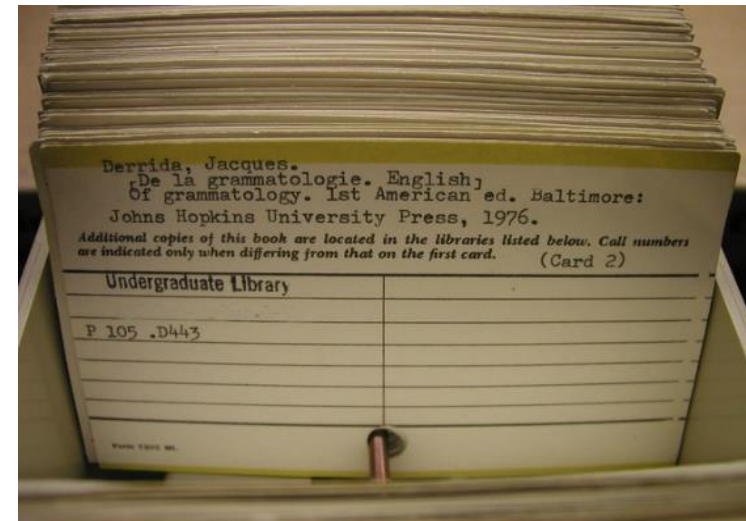 Derrida, Jacques.
[De la grammatologie. English]
Of grammatology. 1st American ed. Baltimore:
Johns Hopkins University Press, 1976.
Additional copies of this book are located in the libraries listed below. Call numbers
are indicated only when differing from that on the first card.
(Card 2)
Undergraduate Library
P 105 .D443
Form